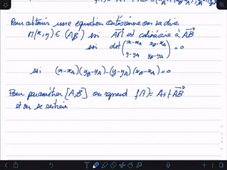 Pour obtenir une équation cartésienne on se dit
M(x,y) ∈ (AB) ssi AM est colinéaire à AB
ssi det ( x-xA xB-xA
y-yA yB-yA ) = 0
ssi (x-xA)(yB-yA)-(y-yA)(xB-xA)=0
Pour paramétrer [A,B] on prend f(t)= A+t AB
et on se